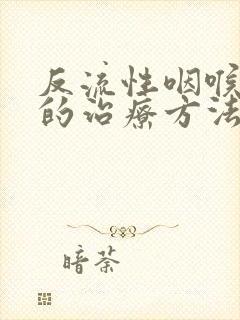 反流性咽喉
的治疗方法
暗荼